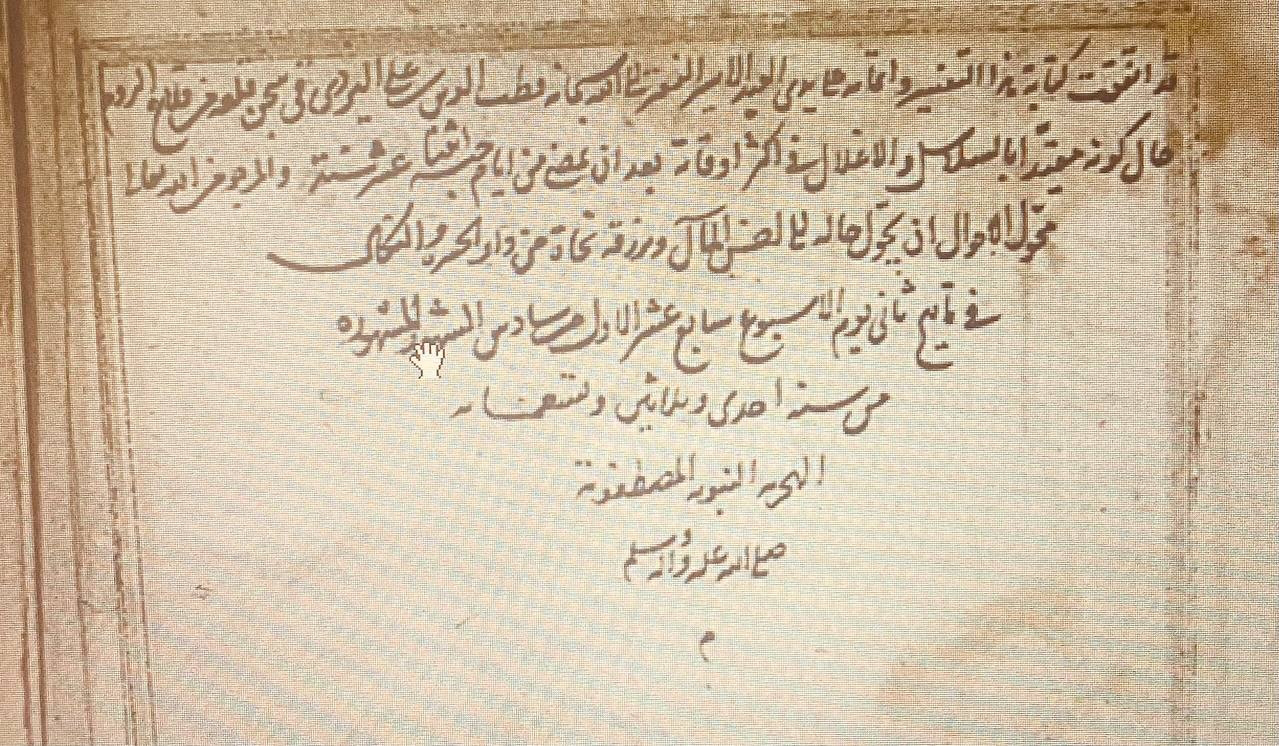 قد اتفقت كتابة هذا التفسير واتمامه على يدي العبد الاسير الفقير الى الله سبحانه قطب الدين على اليزدى فى سجن من قلاع الروم
حال كونه مقيدا بالسلاسل والاغلال فى اكثر اوقاته بعد ان مضى من ايام حبسه اثنا عشر سنة والمرجو من الله تعالى
محول الاحوال ان يحول حاله الى احسن المآل ويرزقه نجاة من
فى تاريخ ثانى يوم الاسبوع سابع عشر الاول من سادس الشهور المشهوره
من سنة احدى وثلاثين وتسعمائه
الهجريه النبويه المصطفوية
صلى الله عليه وآله وسلم
م